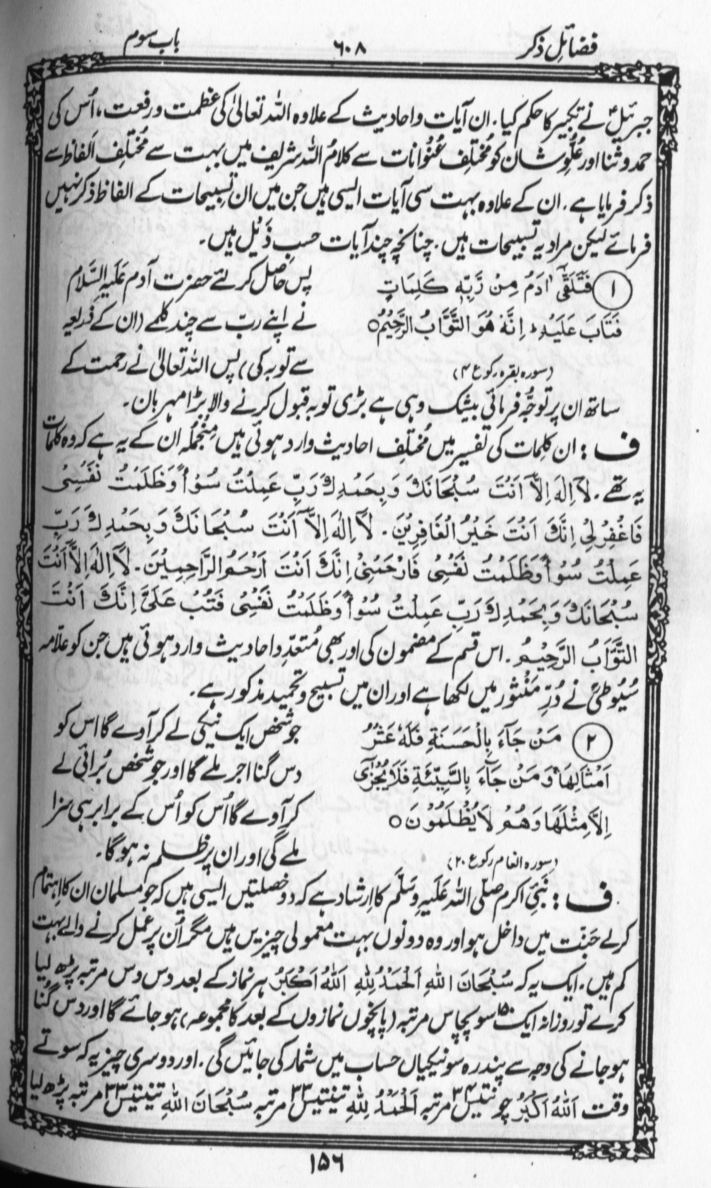 فضائل ذکر ۶۰۸ باب سوم
جبرئیلؑ نے تکبیر کا حکم کیا۔ ان آیات و احادیث کے علاوہ اللہ تعالیٰ کی عظمت و رفعت، اُس کی
حمد و ثنا اور عُلوِّ شان کو مختلف عُنوانات سے کلامُ اللہ شریف میں بہت سے مُختلِف اَلفاظ سے
ذکر فرمایا ہے۔ ان کے علاوہ بہت سی آیات ایسی ہیں جن میں ان تسبیحات کے الفاظ ذکر نہیں
فرمائے لیکن مراد یہ تسبیحات ہیں۔ چنانچہ چند آیات حسب ذَیل ہیں۔
① فَتَلَقّٰۤى اٰدَمُ مِنْ رَّبِّهٖ كَلِمَاتٍ
فَتَابَ عَلَيْهِ ؕ اِنَّهٗ هُوَ التَّوَّابُ الرَّحِيْمُ ○
(سورہ بقرہ، رکوع ۴)
پس حاصل کر لئے حضرت آدم عَلَیہِ السَّلام
نے اپنے ربّ سے چند کلمے (ان کے ذریعہ
سے توبہ کی) پس اللہ تعالیٰ نے رحمت کے
ساتھ ان پر توجُّہ فرمائی بیشک وہی ہے بڑی توبہ قبول کرنے والا بڑا مہربان۔
ف: ان کلمات کی تفسیر میں مُختلف احادیث وارد ہوئی ہیں مِنجُملہ ان کے یہ ہے کہ وہ کلمات
یہ تھے۔ لَاۤ اِلٰهَ اِلَّاۤ اَنْتَ سُبْحَانَكَ وَبِحَمْدِكَ رَبِّ عَمِلْتُ سُوْٓأً وَّظَلَمْتُ نَفْسِيْ
فَاغْفِرْ لِيْ اِنَّكَ اَنْتَ خَيْرُ الْغَافِرِيْنَ۔ لَاۤ اِلٰهَ اِلَّاۤ اَنْتَ سُبْحَانَكَ وَبِحَمْدِكَ رَبِّ
عَمِلْتُ سُوْٓأً وَّظَلَمْتُ نَفْسِيْ فَارْحَمْنِيْ اِنَّكَ اَنْتَ اَرْحَمُ الرَّاحِمِيْنَ۔ لَاۤ اِلٰهَ اِلَّاۤ اَنْتَ
سُبْحَانَكَ وَبِحَمْدِكَ رَبِّ عَمِلْتُ سُوْٓأً وَّظَلَمْتُ نَفْسِيْ فَتُبْ عَلَيَّ اِنَّكَ اَنْتَ
التَّوَّابُ الرَّحِيْمُ۔ اس قسم کے مضمون کی اور بھی مُتعدّد احادیث وارد ہوئی ہیں جن کو علاّمہ
سُیُوطیؒ نے دُرِّ مَنثور میں لکھا ہے اور ان میں تسبیح و تحمید مذکور ہے۔
② مَنْ جَآءَ بِالْحَسَنَةِ فَلَهٗ عَشْرُ
اَمْثَالِهَا ۚ وَمَنْ جَآءَ بِالسَّيِّئَةِ فَلَا يُجْزٰۤى
اِلَّا مِثْلَهَا وَهُمْ لَا يُظْلَمُوْنَ ○
(سورہ انعام رکوع ۲۰)
جو شخص ایک نیکی لے کر آوے گا اس کو
دس گنا اجر ملے گا اور جو شخص بُرائی لے
کر آوے گا اُس کو اُس کے برابر ہی سزا
ملے گی اور ان پر ظلم نہ ہو گا۔
ف: نبیِّ اکرم صلی اللہ عَلَیہِ وَسَلَّم کا اِرشاد ہے کہ دو خصلتیں ایسی ہیں کہ جو مسلمان ان کا اِہتمام
کر لے جَنّت میں داخل ہو اور وہ دونوں بہت معمولی چیزیں ہیں مگر اُن پر عَمل کرنے والے بہت
کم ہیں۔ ایک یہ کہ سُبْحَانَ اللهِ اَلْحَمْدُ لِلّٰهِ اَللّٰهُ اَكْبَرُ ہر نماز کے بعد دس دس مرتبہ پڑھ لیا
کرے تو روزانہ ایک سو پچاس ۱۵۰ مرتبہ (پانچوں نمازوں کے بعد کا مجموعہ) ہو جائے گا اور دس گُنا
ہو جانے کی وجہ سے پندرہ سو نیکیاں حساب میں شمار کی جائیں گی۔ اور دوسری چیز یہ کہ سوتے
وقت اَللّٰهُ اَكْبَرُ چونتیس ۳۴ مرتبہ اَلْحَمْدُ لِلّٰهِ تینتیس ۳۳ مرتبہ سُبْحَانَ اللهِ تینتیس ۳۳ مرتبہ پڑھ لیا
۱۵۶